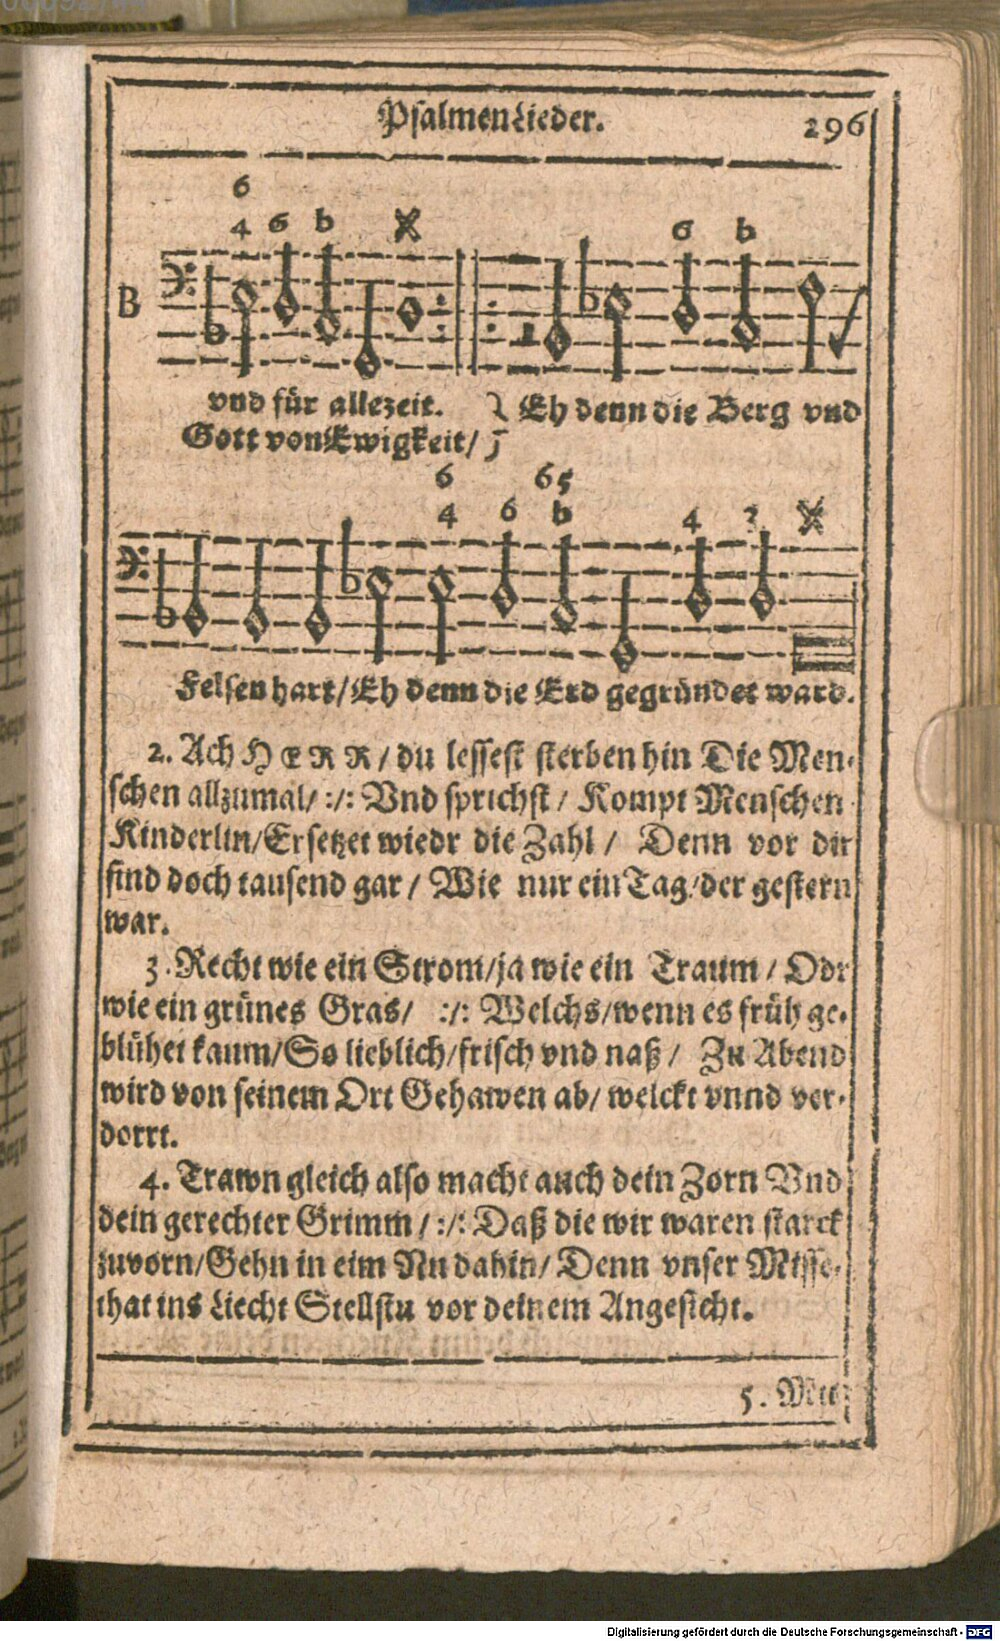 PsalmenLieder. 296
6
4 6 b
6 b
B
vnd für allezeit. Eh denn die Berg vnd
Gott von Ewigkeit/
6 65
4 6 b 4 3
Felsen hart/Eh denn die Erd gegründet ward.
2. Ach HERR/du lessest sterben hin Die Men-
schen allzumal/:/: Vnd sprichst/ Kompt Menschen
Kinderlin/Ersetzet wiedr die Zahl/ Denn vor dir
sind doch tausend gar/ Wie nur ein Tag/der gestern
war.
3. Recht wie ein Strom/ja wie ein Traum/ Odr
wie ein grünes Gras/ :/: Welchs/wenn es früh ge-
blühet kaum/So lieblich/frisch vnd naß/ Zu Abend
wird von seinem Ort Gehawen ab/welckt vnnd ver-
dorrt.
4. Trawn gleich also macht auch dein Zorn Vnd
dein gerechter Grimm/:/: Daß die wir waren starck
zuvorn/Gehn in eim Nu dahin/ Denn vnser Misse-
that ins Liecht Stellstu vor deinem Angesicht.
5. Mit
Digitalisierung gefördert durch die Deutsche Forschungsgemeinschaft - DFG